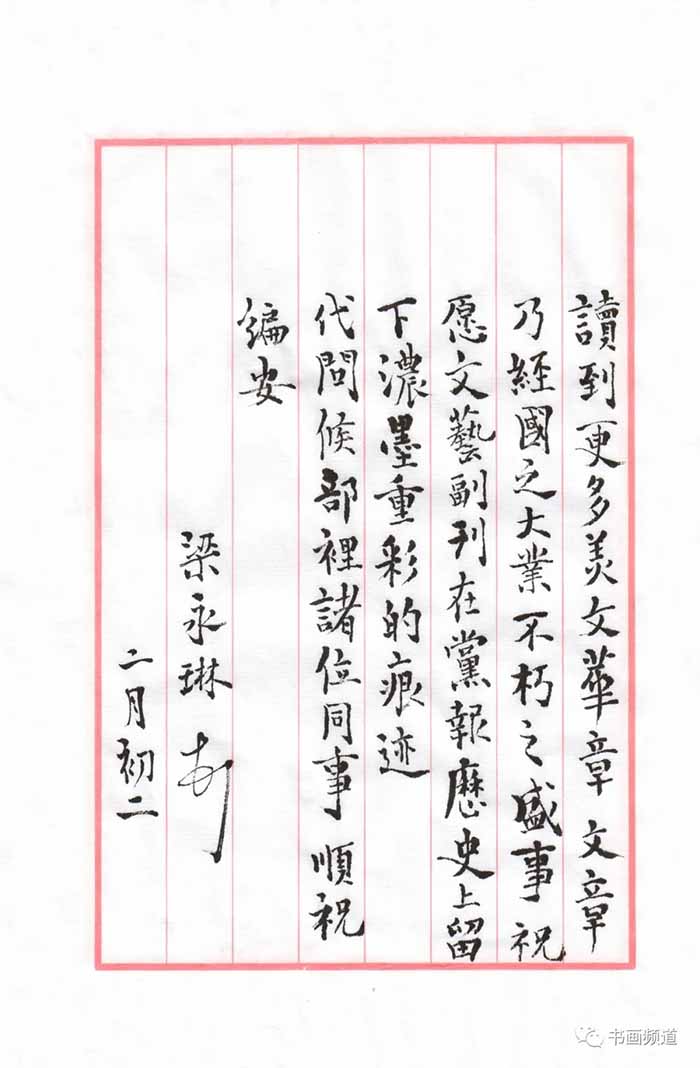 讀到更多美文華章 文章
乃經國之大業不朽之盛事 祝
愿文藝副刊在黨報歷史上留
下濃墨重彩的痕迹
代問候部裡諸位同事 順祝
編安
梁永琳
二月初二
书画频道